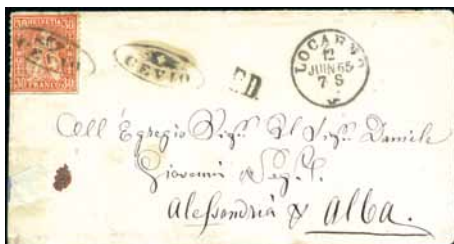 30 HELVETIA 30
FRANCO
CEVIO
P.D.
LOCARNO
12
JUIN 65
7 S
All' Egregio Sig.r Daniele
Giovanni
Alessandria Alba.